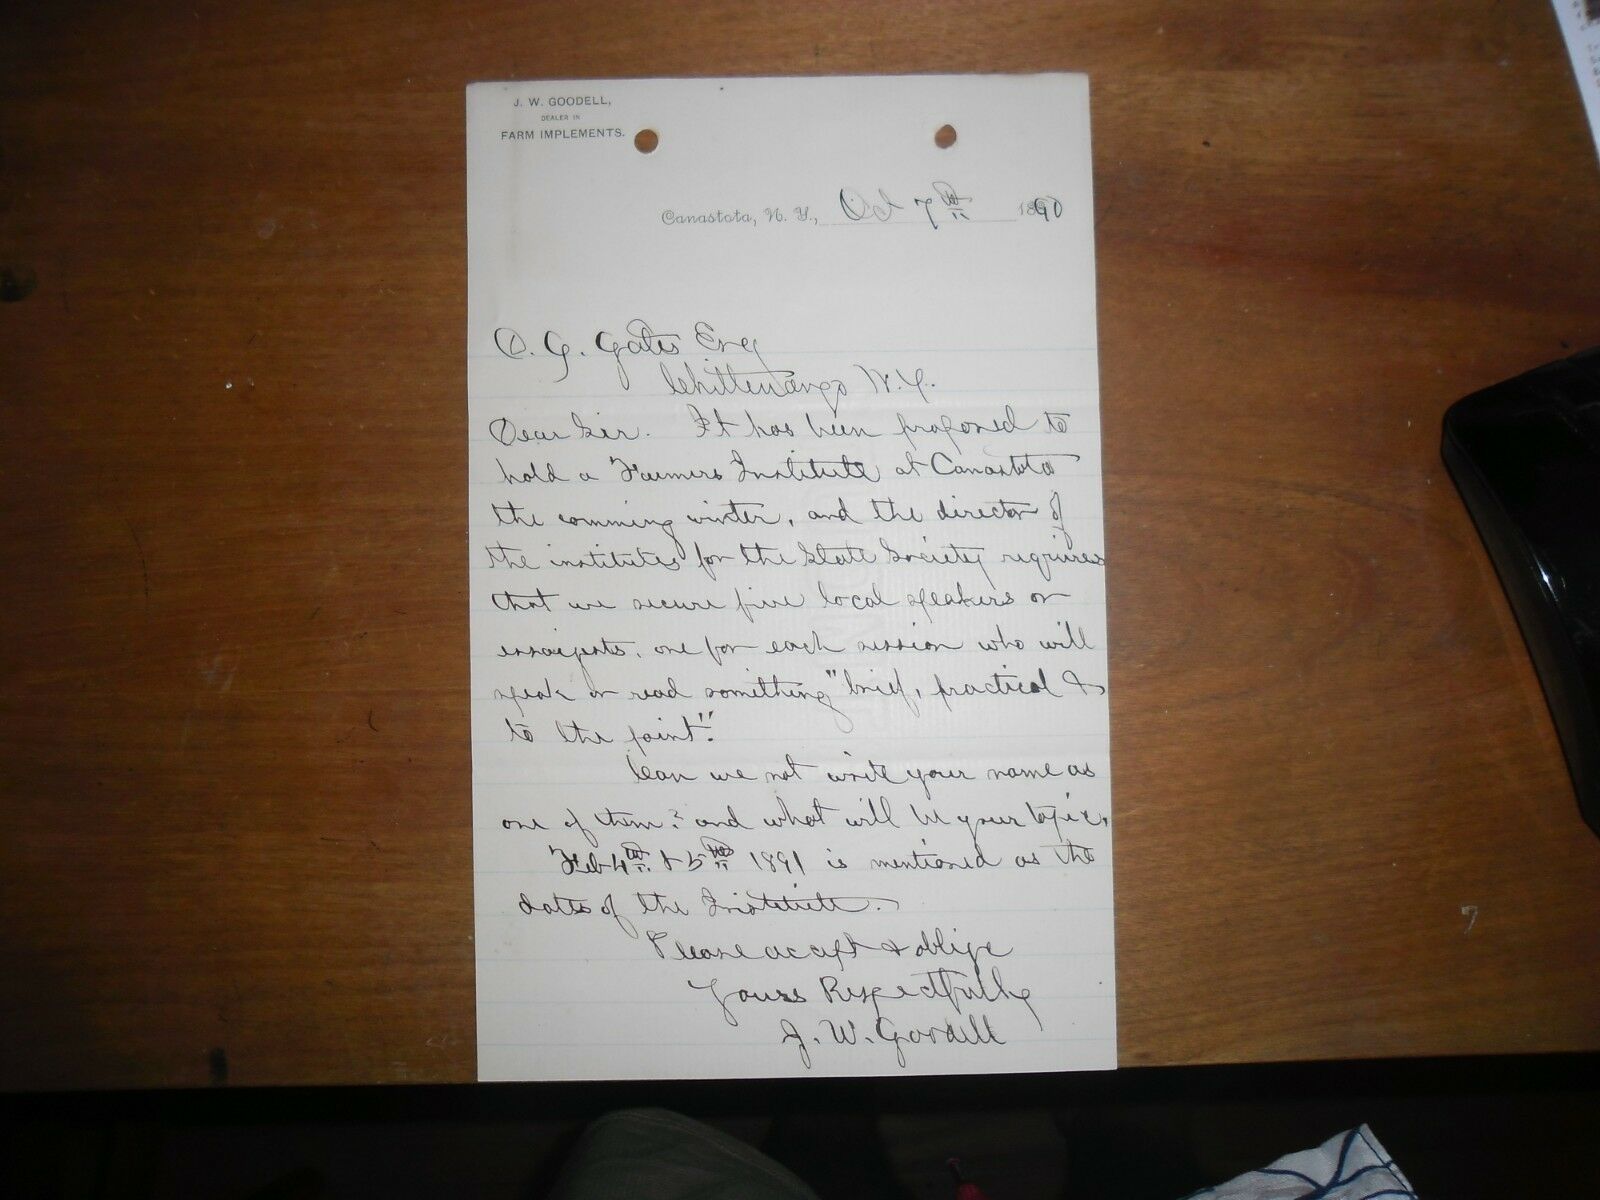 J. W. GOODELL,
DEALER IN
FARM IMPLEMENTS.
Canastota, N. Y., Oct 7th 1890
O. G. Gates Esq
Chittenango N.Y.
Dear Sir. It has been proposed to
hold a Farmers Institute at Canastota
the comming winter, and the director of
the institutes for the State Society requires
that we secure five local speakers or
essayists, one for each session who will
speak or read something "brief, practical &
to the point".
Can we not write your name as
one of them? and what will be your topic.
Feb 4th & 5th 1891 is mentioned as the
dates of the Institute.
Please accept & oblige
Yours Respectfully
J. W. Goodell